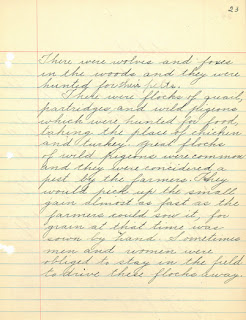 23
There were wolves and foxes
in the woods and they were
hunted for their pelts.
There were flocks of quail,
partridges, and wild pigeons
which were hunted for food,
taking the place of chicken
and turkey. Great flocks
of wild pigeons were common
and they were considered a
pest by the farmers. They
would pick up the small
gain almost as fast as the
farmers could sow it, for
grain at that time was
sown by hand. Sometimes
men and women were
obliged to stay in the field
to drive these flocks away.